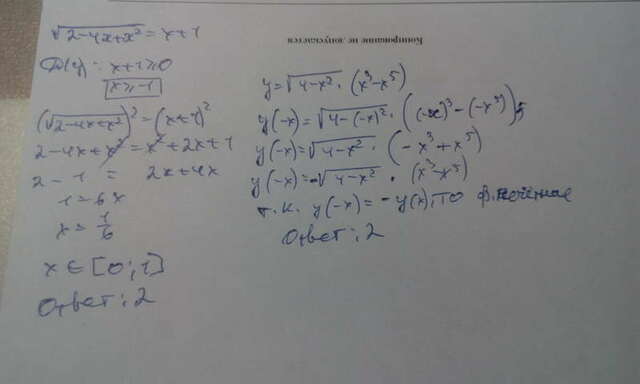 Копирование не допускается
√2-4x+x² = x+1
D(y): x+1≥0
x≥-1
(√2-4x+x²)² = (x+1)²
2-4x+x² = x²+2x+1
2-1 = 2x+4x
1=6x
x = 1/6
x ∈ [0;1]
Ответ: 2
y=√4-x² · (x³-x⁵)
y(-x)=√4-(-x)² · ((-x)³-(-x)⁵)
y(-x)=√4-x² · (-x³+x⁵)
y(-x)=-√4-x² · (x³-x⁵)
т.к. y(-x) = -y(x), то ф. нечётная
Ответ: 2